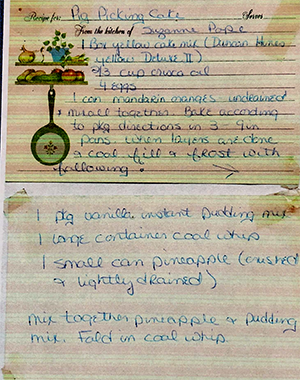 Recipe for: Pig Picking Cake Serves
From the kitchen of Suzanne Pope
1 Box yellow cake mix (Duncan Hines
yellow Deluxe II)
2/3 cup crisco oil
4 eggs
1 can mandarin oranges undrained
mix all together. Bake according
to pkg directions in 3 9 in
pans. When layers are done
& cool fill & frost with
following.
1 pkg vanilla instant pudding mix
1 large container cool whip
1 small can pineapple (crushed
& lightly drained)
mix together pineapple & pudding
mix. Fold in cool whip.